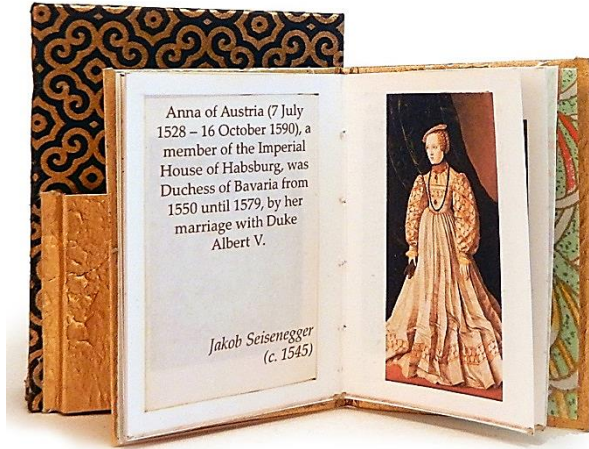 Anna of Austria (7 July
1528 – 16 October 1590), a
member of the Imperial
House of Habsburg, was
Duchess of Bavaria from
1550 until 1579, by her
marriage with Duke
Albert V.
Jakob Seisenegger
(c. 1545)